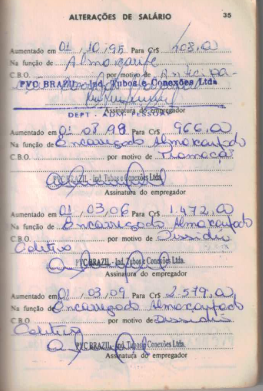 ALTERAÇÕES DE SALÁRIO 35
Aumentado em 01/10/95 Para Cr$ 408,00
Na função de Almoxarife
C.B.O. por motivo de
PVC BRAZIL - Ind. Tubos e Conexões Ltda
Assinatura do empregador
DEPT - ADM. PESSOAL
Aumentado em 01.08.99 Para Cr$ 966,00
Na função de Encarregado Almoxarifado
C.B.O. por motivo de
PVC BRAZIL - Ind. Tubos e Conexões Ltda.
Assinatura do empregador
Aumentado em 01/03/06 Para Cr$ 1.472,00
Na função de Encarregado Almoxarifado
C.B.O. por motivo de Dissídio
Coletivo
PVC BRAZIL - Ind. Tubos e Conexões Ltda.
Assinatura do empregador
Aumentado em 01/03/09 Para Cr$ 2.579,00
Na função de Encarregado Almoxarifado
C.B.O. por motivo de Dissídio
Coletivo
PVC BRAZIL - Ind. Tubos e Conexões Ltda.
Assinatura do empregador